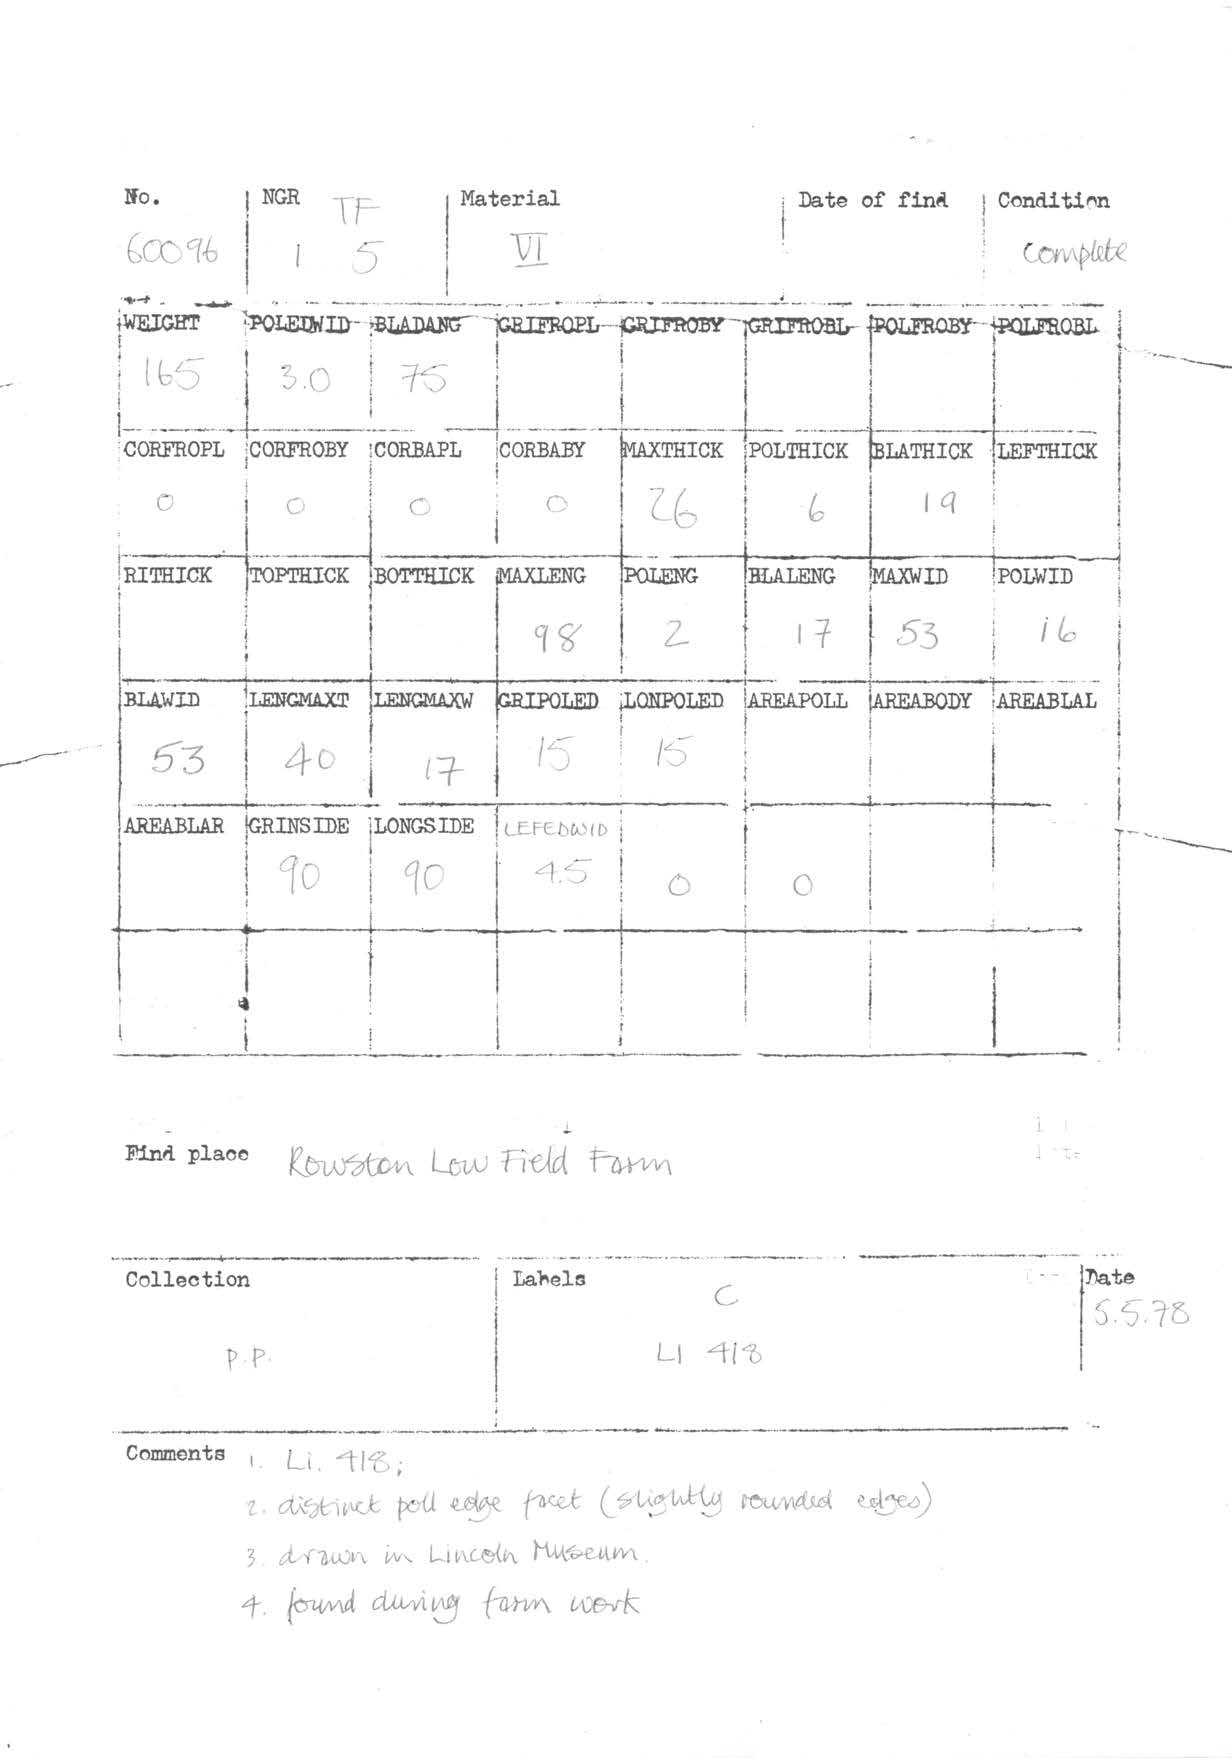 No. NGR TF Material Date of find Condition
60096 1 5 VI complete
WEIGHT POLEDWID BLADANG GRIFROPL GRIFROBY GRIFROBL POLFROBY POLFROBL
165 3.0 75
CORFROPL CORFROBY CORBAPL CORBABY MAXTHICK POLTHICK BLATHICK LEFTHICK
0 0 0 0 26 6 19
RITHICK TOPTHICK BOTTHICK MAXLENG POLENG BLALENG MAXWID POLWID
98 2 17 53 16
BLAWID LENGMAXT LENGMAXW GRIPOLED LONPOLED AREAPOLL AREABODY AREABLAL
53 40 17 15 15
AREABLAR GRINSIDE LONGSIDE LEFEDWID
90 90 4.5 0 0
Find place Rowston Low Field Farm
Collection Labels C Date
5.5.78
P.P. LI 418
Comments 1. Li. 418;
2. distinct poll edge facet (slightly rounded edges)
3. drawn in Lincoln Museum.
4. found during farm work